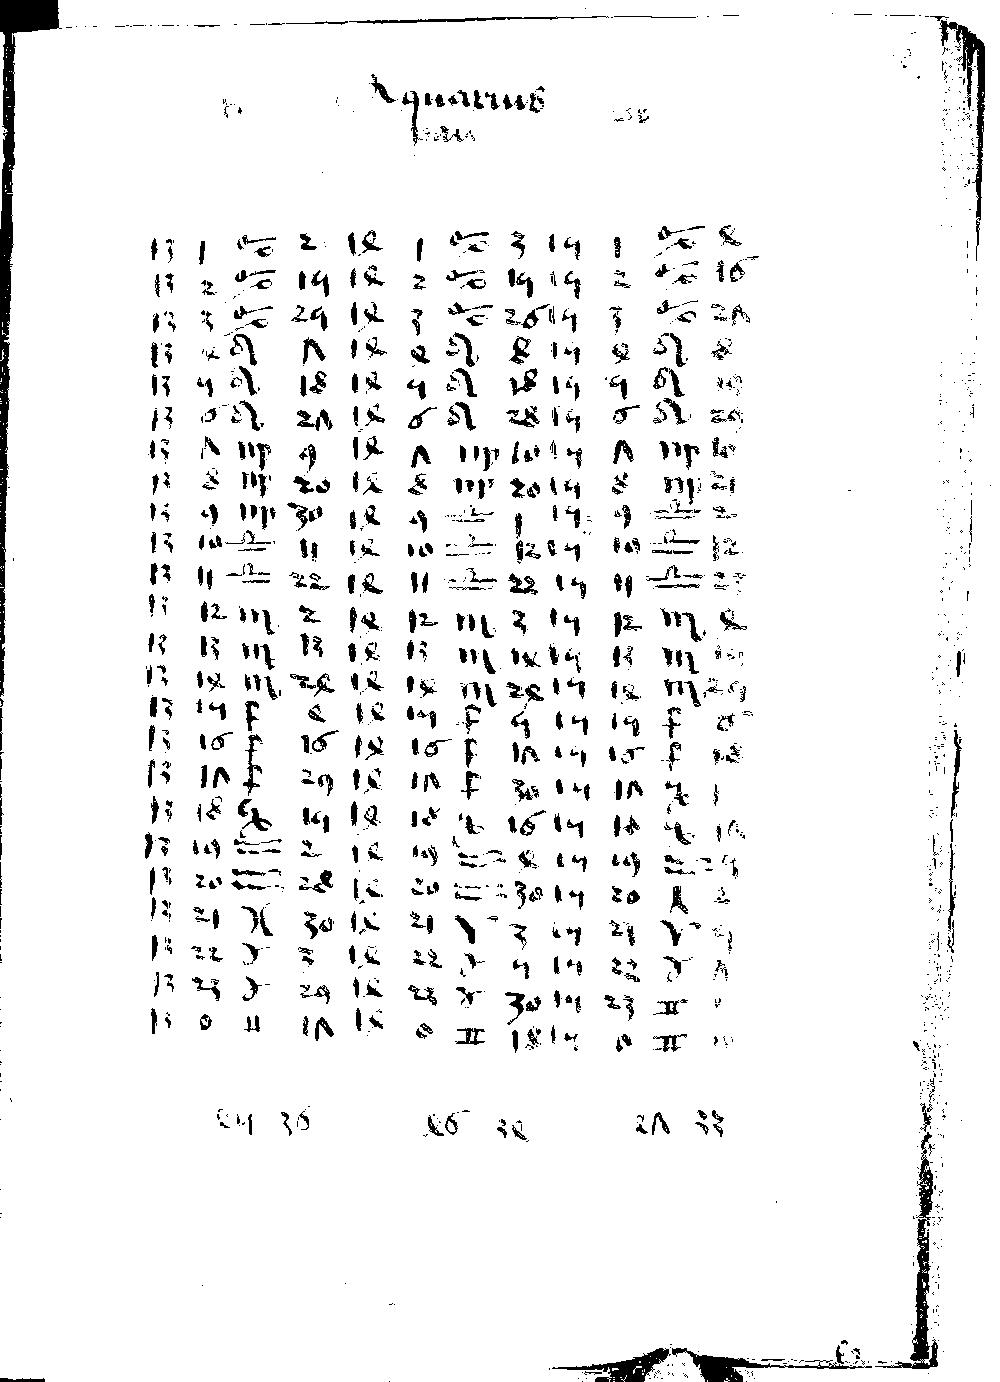 Aquarius
13 1 ♋ 2 14 1 ♋ 3 15 1 ♋ 4
13 2 ♋ 15 14 2 ♋ 15 15 2 ♋ 16
13 3 ♋ 25 14 3 ♋ 26 15 3 ♋ 27
13 4 ♌ 7 14 4 ♌ 8 15 4 ♌ 8
13 5 ♌ 18 14 5 ♌ 18 15 5 ♌
13 6 ♌ 27 14 6 ♌ 28 15 6 ♌ 29
13 7 ♍ 9 14 7 ♍ 10 15 7 ♍ 10
13 8 ♍ 20 14 8 ♍ 20 15 8 ♍ 21
13 9 ♍ 30 14 9 ♎ 1 15 9 ♎ 2
13 10 ♎ 11 14 10 ♎ 12 15 10 ♎ 12
13 11 ♎ 22 14 11 ♎ 22 15 11 ♎ 23
13 12 ♏ 2 14 12 ♏ 3 15 12 ♏ 4
13 13 ♏ 13 14 13 ♏ 14 15 13 ♏
13 14 ♏ 24 14 14 ♏ 24 15 14 ♏ 25
13 15 ♐ 4 14 15 ♐ 5 15 15 ♐ 6
13 16 ♐ 16 14 16 ♐ 17 15 16 ♐ 18
13 17 ♐ 29 14 17 ♐ 30 15 17 ♑ 1
13 18 ♑ 15 14 18 ♑ 16 15 18 ♑ 17
13 19 ♒ 2 14 19 ♒ 4 15 19 ♒ 5
13 20 ♒ 28 14 20 ♒ 30 15 20 ♓ 2
13 21 ♓ 30 14 21 ♈ 3 15 21 ♈ 5
13 22 ♉ 3 14 22 ♉ 5 15 22 ♉ 7
13 23 ♉ 29 14 23 ♉ 30 15 23 ♊
13 0 ♊ 17 14 0 ♊ 18 15 0 ♊
45 36 46 34 47 33